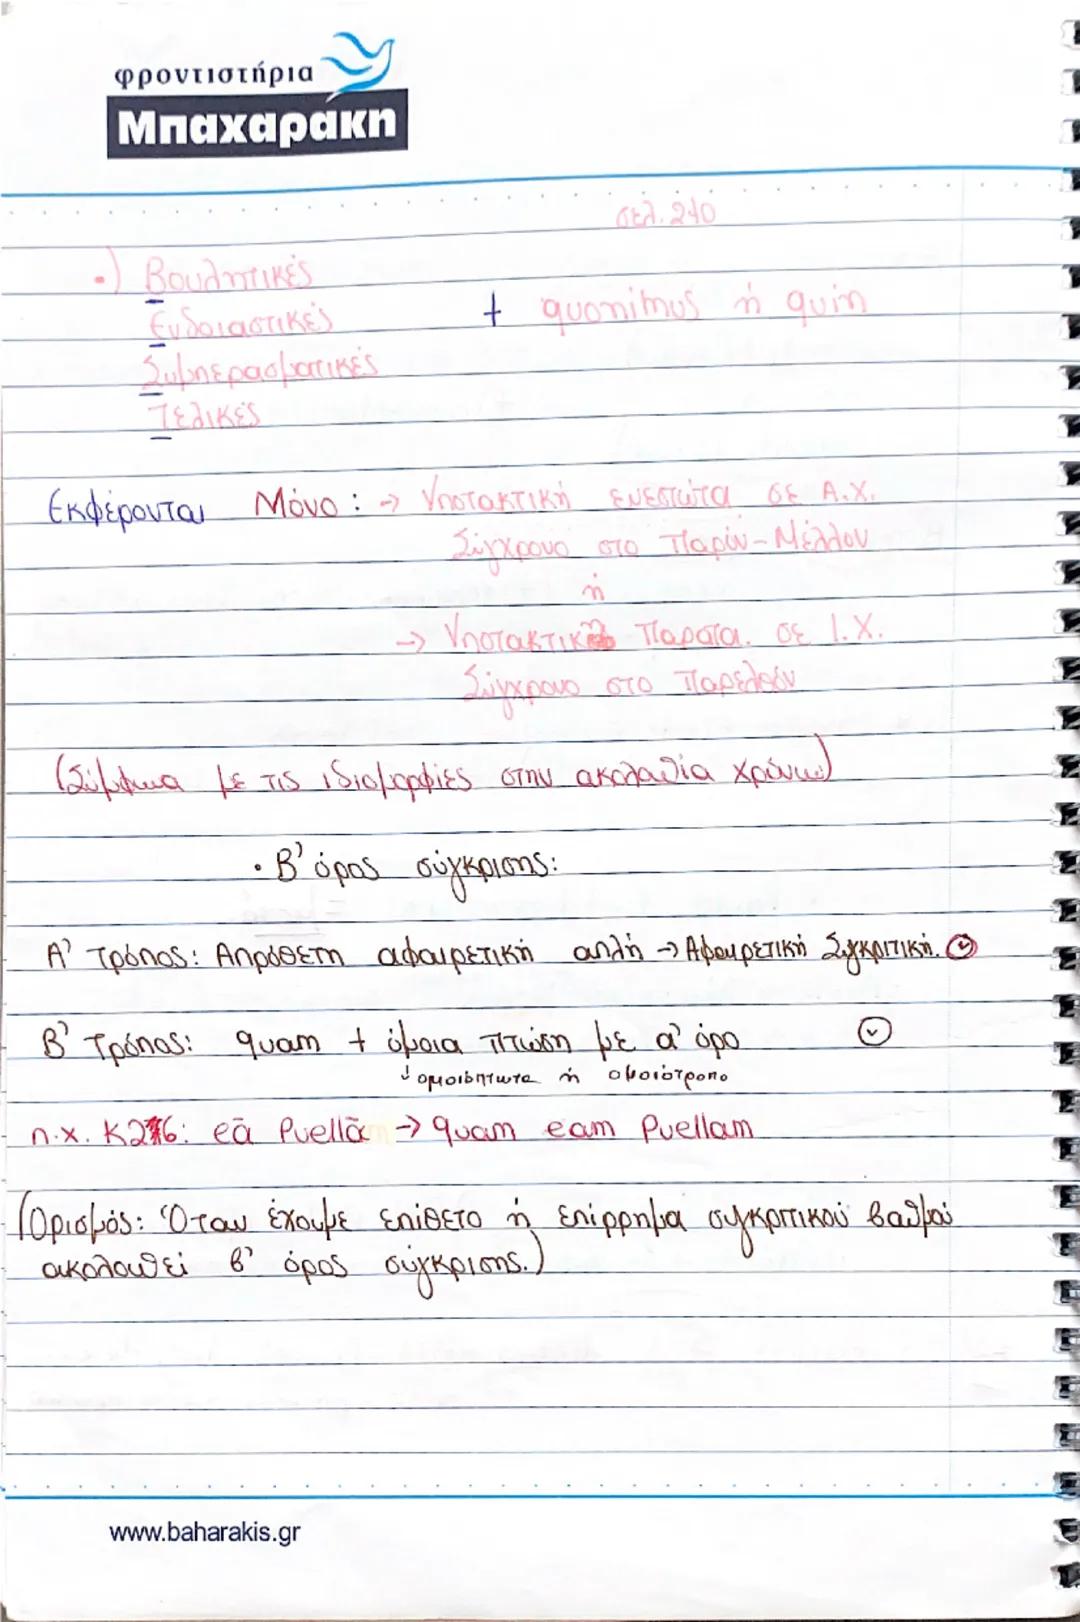 φροντιστήρια
Μπαχαράκη
σελ. 210
•) Βουλητικές
Ενδοιαστικές + quominus ή quin
Συμπερασματικές
Τελικές
Εκφέρονται Μόνο : → Υποτακτική ενεστώτα σε Α.Χ.
Σύγχρονο στο Παρόν - Μέλλον
ή
→ Υποτακτική Παρατα. σε Ι.Χ.
Σύγχρονο στο Παρελθόν
(Σύμφωνα με τις ιδιομορφίες στην ακολουθία χρόνων)
• Β' όρος σύγκρισης:
Α' Τρόπος: Απρόθετη αφαιρετική απλή → Αφαιρετική Συγκριτική.
Β' Τρόπος: quam + όμοια πτώση με α' όρο
↓ ομοιόπτωτα ή ομοιότροπο
π.χ. Κ26: eā Puellā → quam eam Puellam
(Ορισμός: Όταν έχουμε επίθετο ή επίρρημα συγκριτικού βαθμού
ακολουθεί β' όρος σύγκρισης.)
www.baharakis.gr